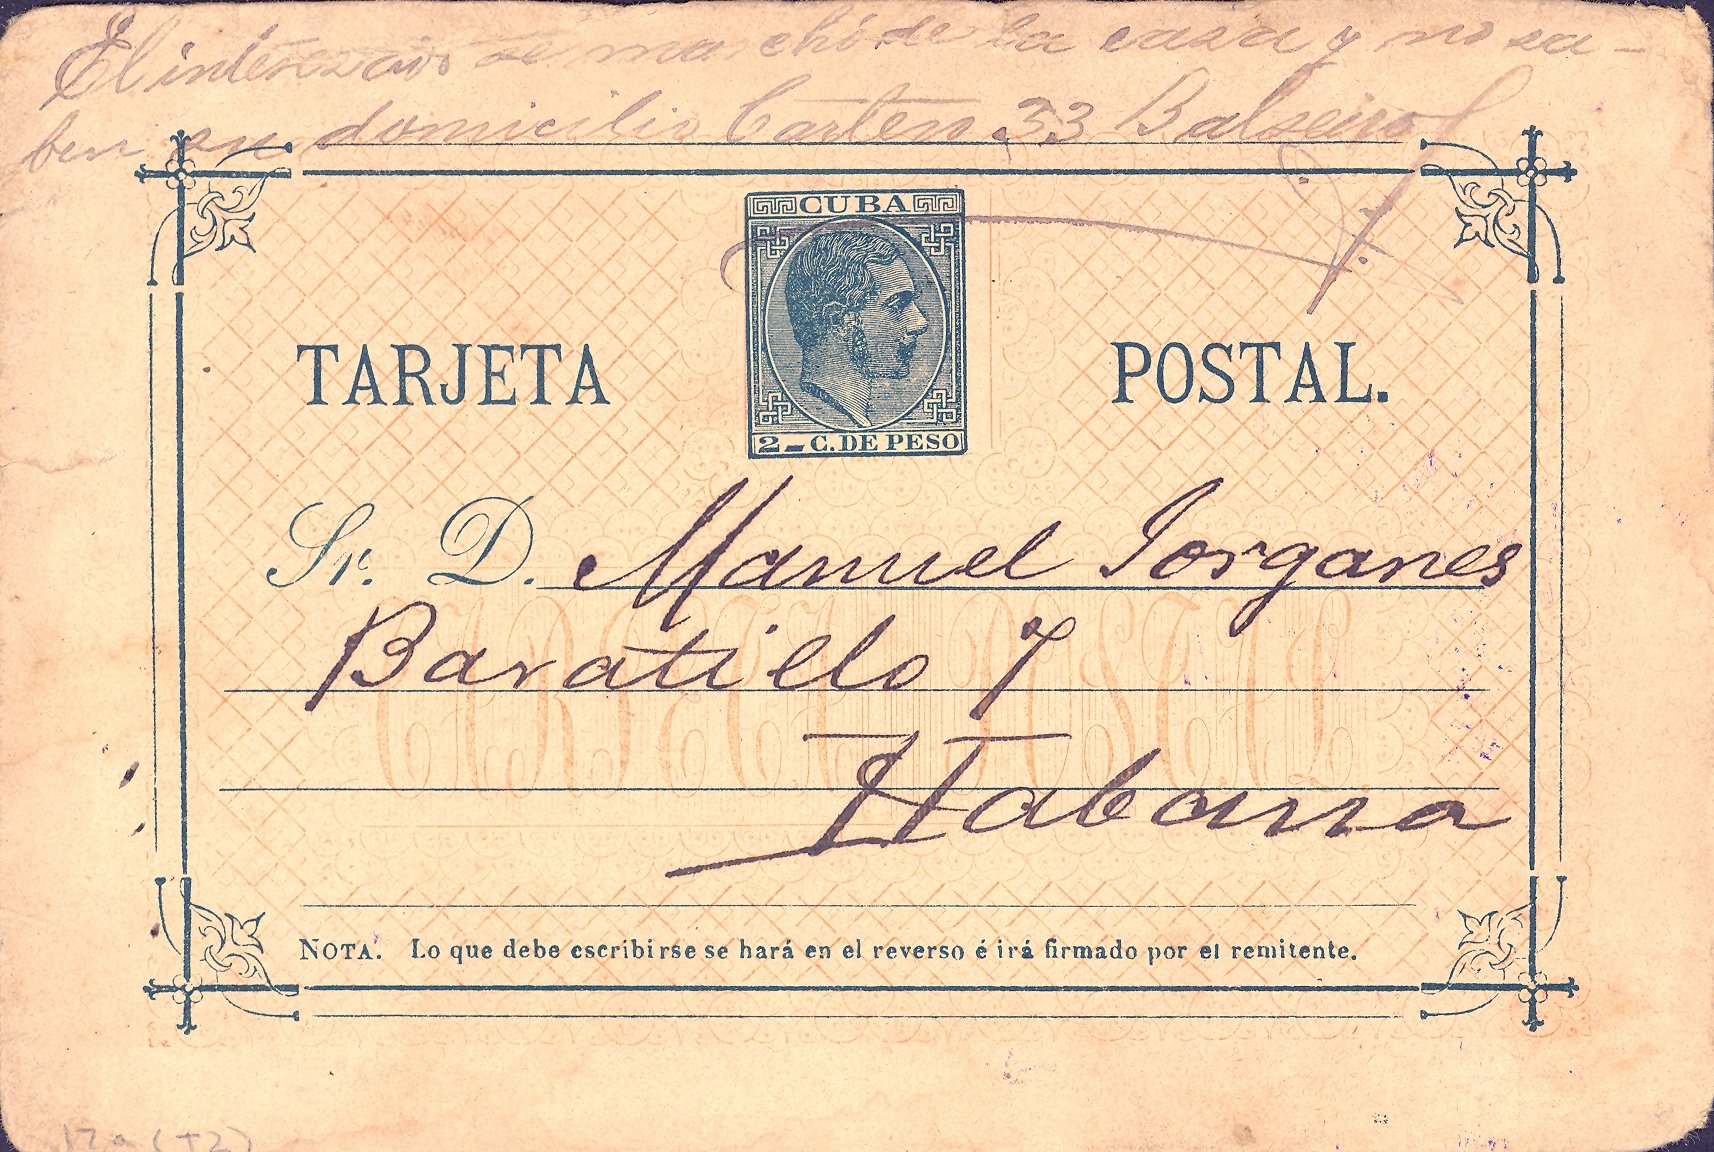 El interezado se marchó de la casa y no sa-
ben su domicilio Cartero 33 Balseiro
CUBA
2 - C. DE PESO
TARJETA POSTAL.
Sr. D. Manuel Jorganes
Baratiello 7
Habana
TARJETA POSTAL
NOTA. Lo que debe escribirse se hará en el reverso é irá firmado por el remitente.
17a (T2)